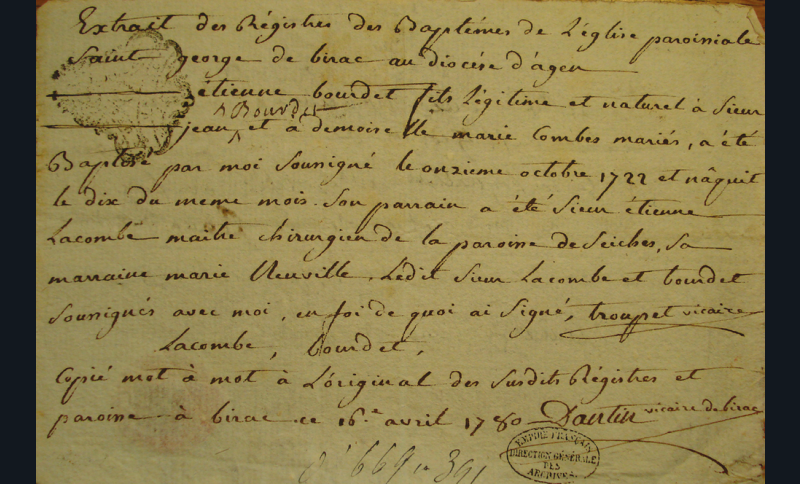 Extrait des Régistres des Baptémes de L'église paroissiale
Saint george de birac au diocése d'agen
etienne bourdet fils Légitime et naturel à Sieur
Bourdet
jean et à demoiselle marie Combes mariés, a été
Baptisé par moi Soussigné le onzieme octobre 1722 et nâquit
le dix du meme mois. Son parrain a été Sieur étienne
Lacombe maitre chirurgien de la paroisse de Seiches, Sa
marraine marie Neuville. Ledit Sieur Lacombe et bourdet
Soussignés avec moi, en foi de quoi ai Signé, troupet vicaire
Lacombe, bourdet,
Copié mot à mot à L'original des Susdits Régistres et
paroisse à birac ce 16.e avril 1780 Dantin vicaire de birac
EMPIRE FRANÇAIS
DIRECTION GÉNÉRALE
DES
ARCHIVES
669 391